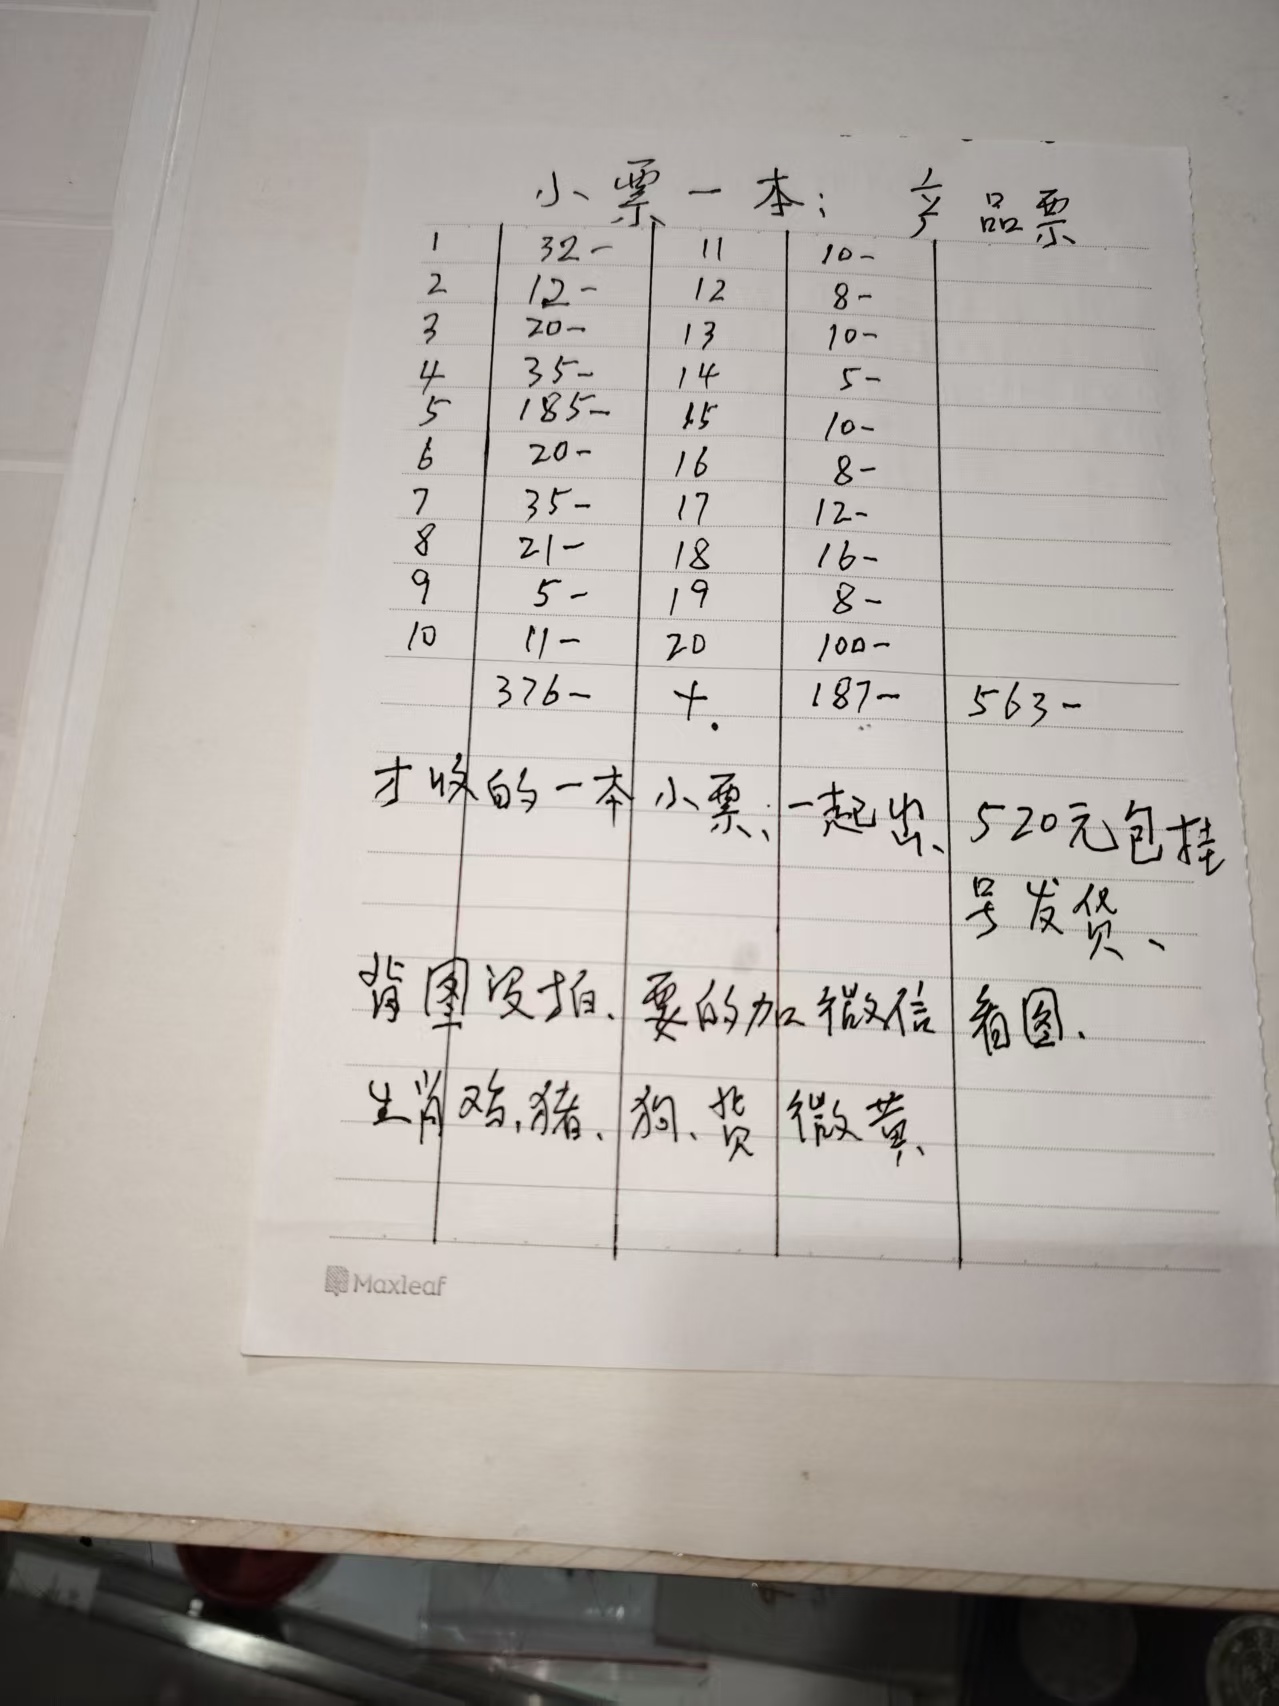 小票一本: 产品票
1 32- 11 10-
2 12- 12 8-
3 20- 13 10-
4 35- 14 5-
5 185- 15 10-
6 20- 16 8-
7 35- 17 12-
8 21- 18 16-
9 5- 19 8-
10 11- 20 100-
376- + 187- 563-
才收的一本小票,一起出、520元包挂
号发货、
背图没拍、要的加微信看图.
生肖鸡,猪、狗、背微黄、
Maxleaf